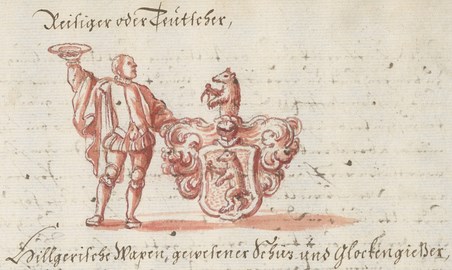 Heiliger oder Teütscher,
Hillgerische Wapen, gewesener Schüz und Glockengießer,